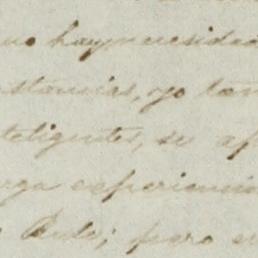 no hay necesidad
stancias, yo tam
teligentes, se ap
rga experienci
pero e